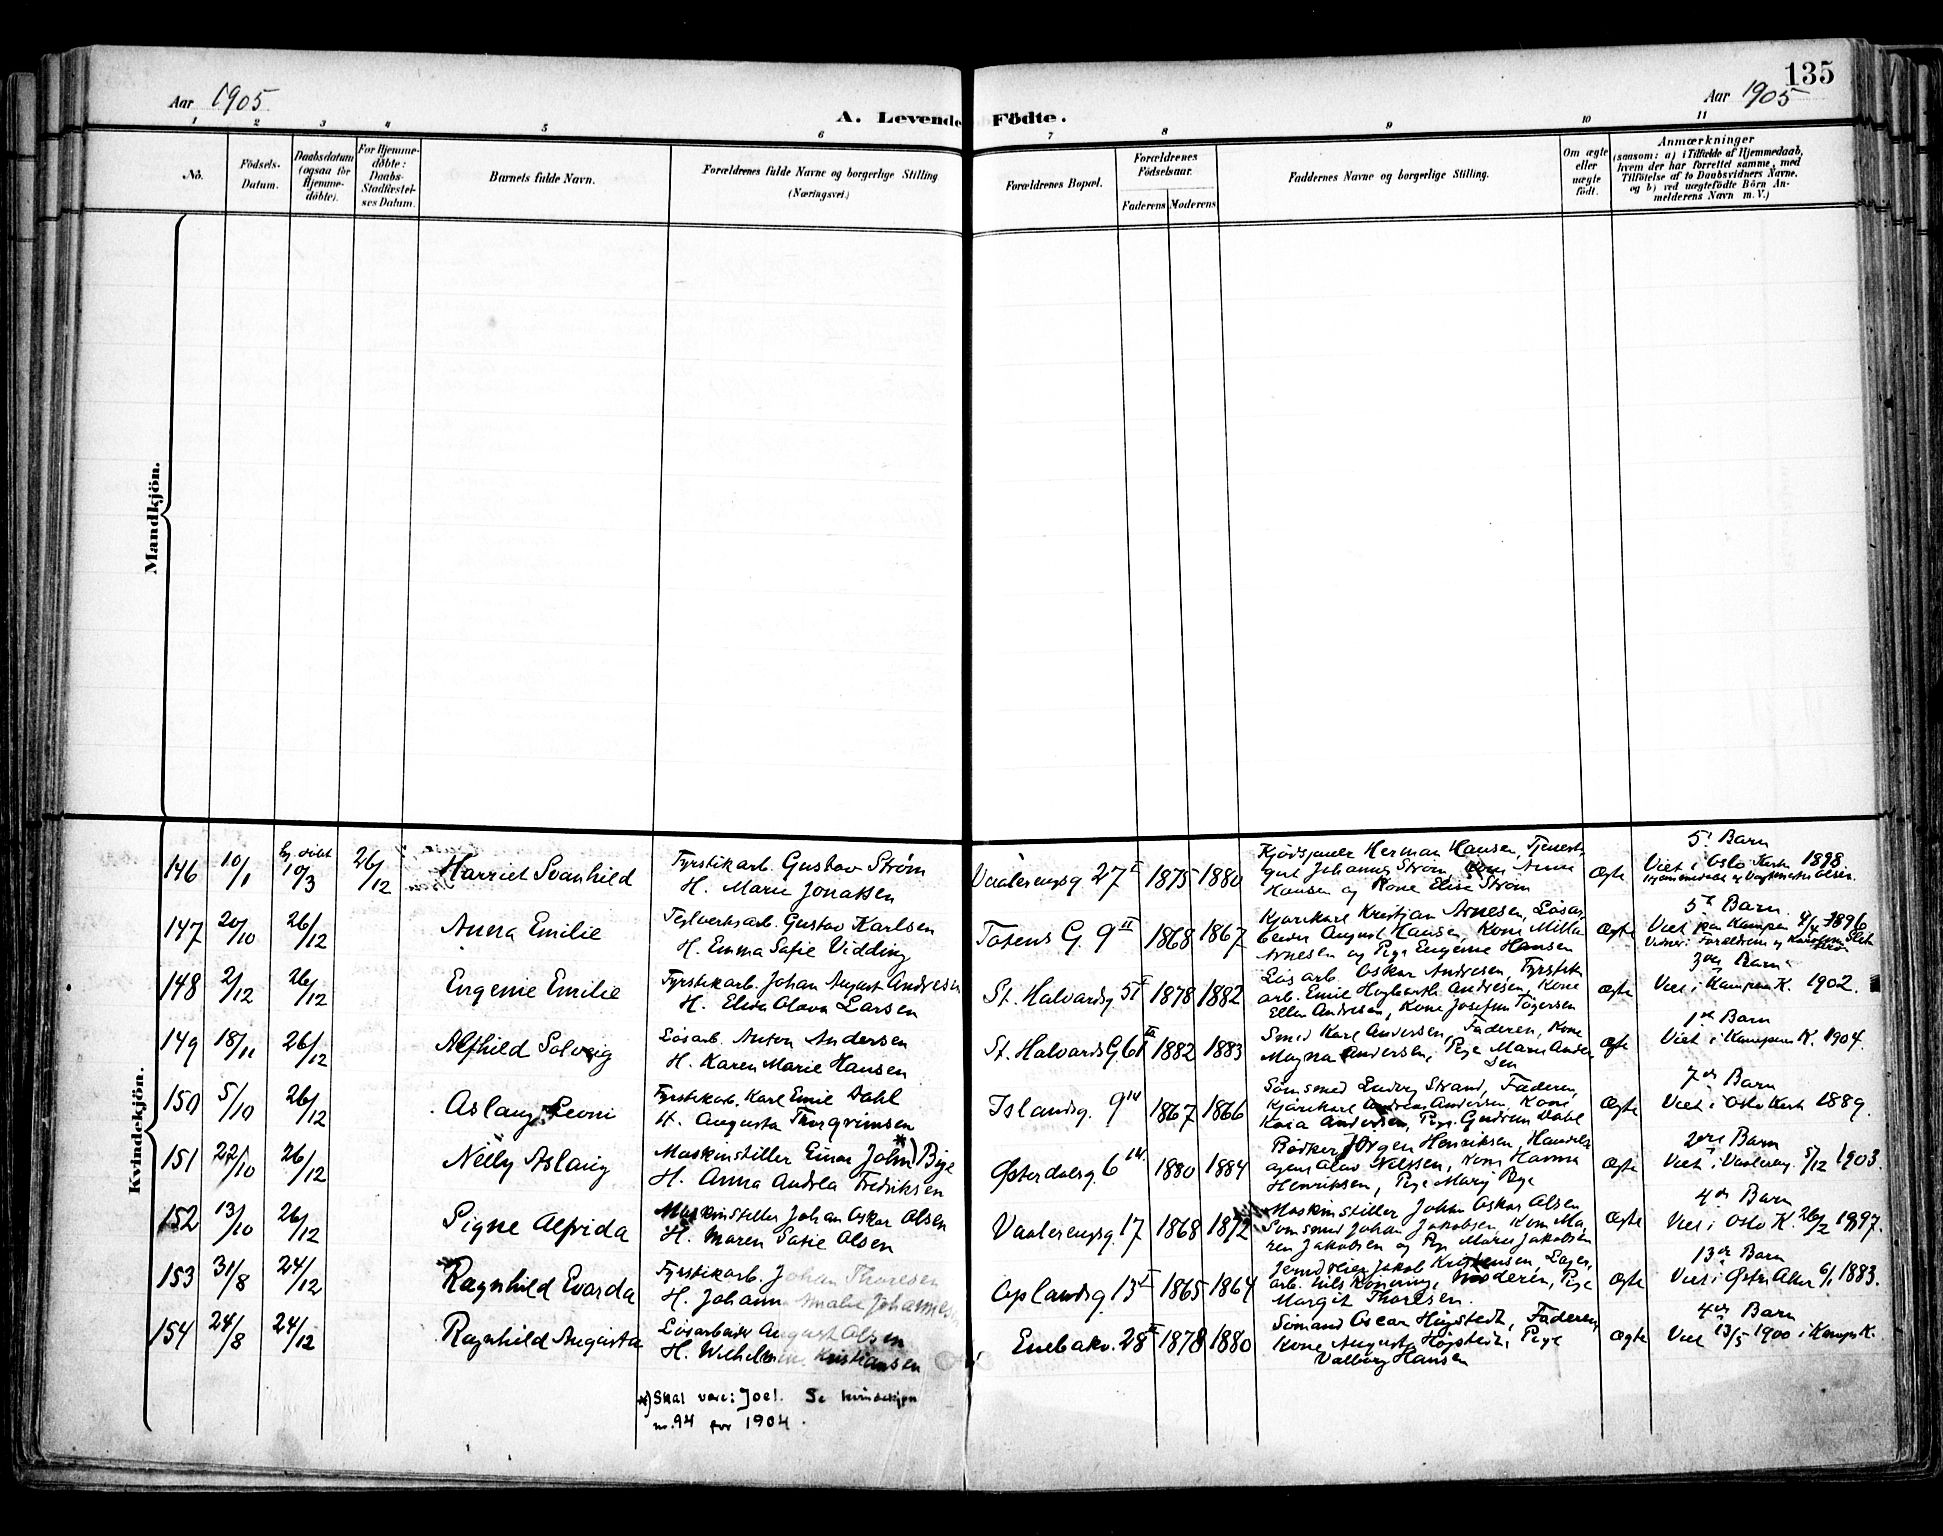 135
Aar 1905
A. Levende Födte.
Aar 1905
1 2 3 4 5 6 7 8 9 10 11
No.
Födsels-
Datum.
Daabsdatum
(ogsaa for
Hjemme-
döbte).
For Hjemme-
döbte:
Daabs-
Stadfæstel-
ses Datum.
Barnets fulde Navn.
Forældrenes fulde Navne og borgerlige Stilling
(Næringsvei.)
Forældrenes Bopæl.
Forældrenes
Födselsaar.
Faderens Moderens
Faddernes Navne og borgerlige Stilling.
Om ægte
eller
uægte
födt.
Anmærkninger
(saasom: a) i Tilfælde af Hjemmedaab,
hvem der har forrettet samme, med
Tilföielse af to Daabsvidners Navne.
og b) ved uægtefödte Börn An-
melderens Navn m. V.)
Mandkjön.
Kvindekjön.
146 10/1 10/3 26/12 Harriet Svanhild
Fyrstikarb. Gustav Strøm
H. Marie Jonassen
Vaalerengsg 27 1875 1880
Herman Hansen,
Johannes Strøm, Kone Anna
Hansen og Kone Elise Strøm
Ægte
5t Barn
Viet i Oslo Kirke 1898.
147 20/10 26/12 Anna Emilie
Teglverksarb. Gustav Karlsen
H. Emma Sofie Vidding
Tøiens G. 9 II 1868 1867
Kjørekarl Kristian Arnesen, Løsar-
beider August Hansen, Kone Milla
Arnesen og Pige Eugenie Hansen
Ægte
5t Barn.
Viet paa Kampen 4/4 1896
148 2/12 26/12 Eugenie Emilie
Fyrstikarb. Johan August Andresen
H. Elisa Olava Larsen
St. Halvardsg 51 1878 1882
Løsarb. Oskar Andresen, Fyrstik
arb. Emil Andresen, Kone
Ellen Andresen, Kone Josefine
Ægte
3die Barn
Viet i Kampen K. 1902.
149 18/11 26/12 Alfhild Solveig
Løsarb. Anton Andersen
H. Karen Marie Hansen
St. Halvards G. 61 1882 1883
Smed Karl Anderssen, Faderen, Kone
Magna Anderssen, Pige Marie Ander
sen
Ægte
1ste Barn
Viet i Kampens K. 1904.
150 5/10 26/12 Aslaug Leoni
Fyrstikarb. Karl Emil Dahl
H. Augusta Thorgrimsen
Islandsg. 9 1867 1866
Sømsmed Ludvig Strand, Faderen,
Kjørekarl Andreas Andersen, Kone
Andersen, Pige Gudrun Dahl
Ægte
7de Barn
Viet i Oslo Kirke 1889.
151 22/10 26/12 Nelly Aslaug
Maskinstiller Einar John *) Bye
H. Anna Andrea Fredriksen
Østerdalsg. 6 1880 1884
Bødker Jørgen Henriksen, Handels
agent Olav Nilssen, Kone Hanna
Henriksen, Pige Mary Bye
Ægte
2det Barn
Viet i Vaalereng. 5/12 1903.
152 13/10 26/12 Signe Alfrida
Maskinstiller Johan Oskar Olsen
H. Maren Sofie Olsen
Vaalerengsg. 17 1868 1872
Maskinstiller Johan Oskar Olsen
Sømsmed Johan Jakobsen, Kone Ma-
ren Jakobsen og Pige Marie Jakobsen
Ægte
4de Barn
Viet i Oslo K. 26/2 1897.
153 31/8 24/12 Ragnhild Evarda
Fyrstikarb. Johan Thoresen
H. Johanne Amalie
Oplandsg 13 1865 1864
Jakob Kristensen, Lager-
arb. Nils Moderen, Pige
Margit Thoresen.
Ægte
13de Barn
Viet i Østre Aker 6/1 1883.
154 24/8 24/12 Ragnhild Augusta
Løsarbeider August Olsen
H. Wilhelmine Kristiansen
Enebakv. 28 1878 1880
Sømand Oscar Høgstedt, Faderen,
Kone Augusta Høgstedt, Pige
Valborg Hansen
Ægte
4de Barn
Viet 13/5 1900 i Kampens K.
*) Skal være: Joel. Se kvindekjøn
nr. 94 for 1904.